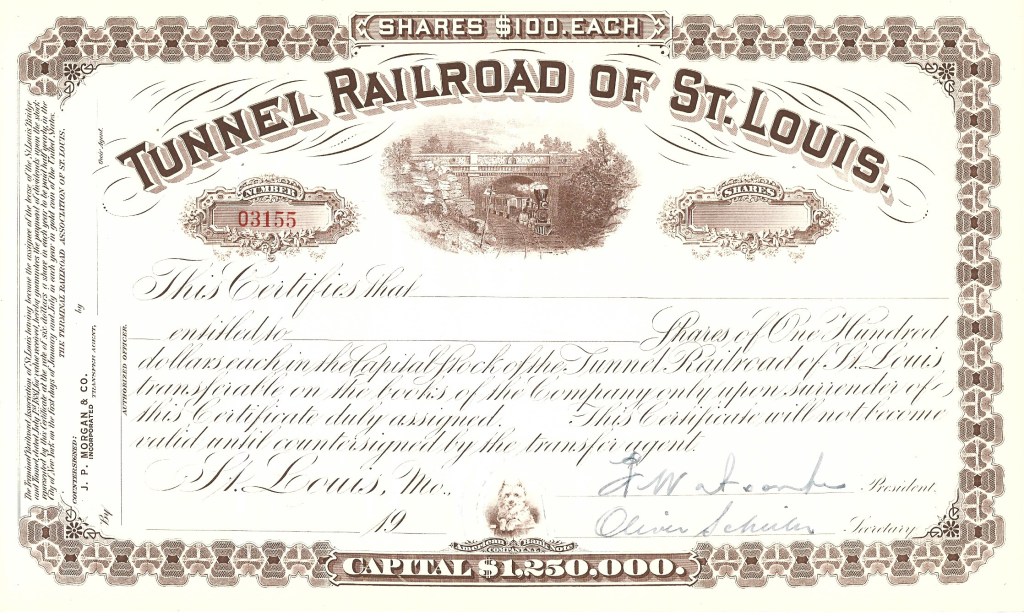 SHARES $100. EACH
TUNNEL RAILROAD OF ST. LOUIS.
NUMBER
03155
SHARES
This Certifies that
entitled to Shares of One Hundred
dollars each in the Capital Stock of the Tunnel Railroad of St. Louis
transferable on the books of the Company only upon surrender of
this Certificate duly assigned. This Certificate will not become
valid until countersigned by the transfer agent.
St. Louis, Mo., President,
19 Oliver Secretary.
American Bank Note
COMPANY N.Y.
CAPITAL $1,250,000.
The Terminal Railroad Association of St. Louis having become the assignee of the lease of the St. Louis Bridge
and Tunnel dated July 1st 1881, for value received, hereby guarantees the payment of dividends upon the stock
represented by this Certificate at the rate of six dollars a share in each year, to be paid half yearly, in the
City of New York on the first days of January and July in each year in gold coin of the United States.
THE TERMINAL RAILROAD ASSOCIATION OF ST. LOUIS,
by their Agent.
COUNTERSIGNED:
J. P. MORGAN & CO.
INCORPORATED TRANSFER AGENT,
By AUTHORIZED OFFICER.